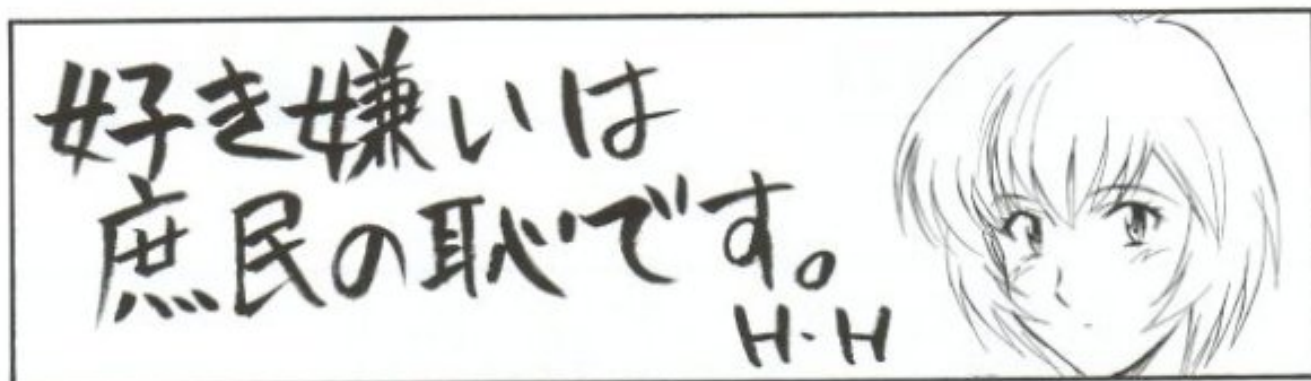 好き嫌いは
庶民の恥です。
H・H